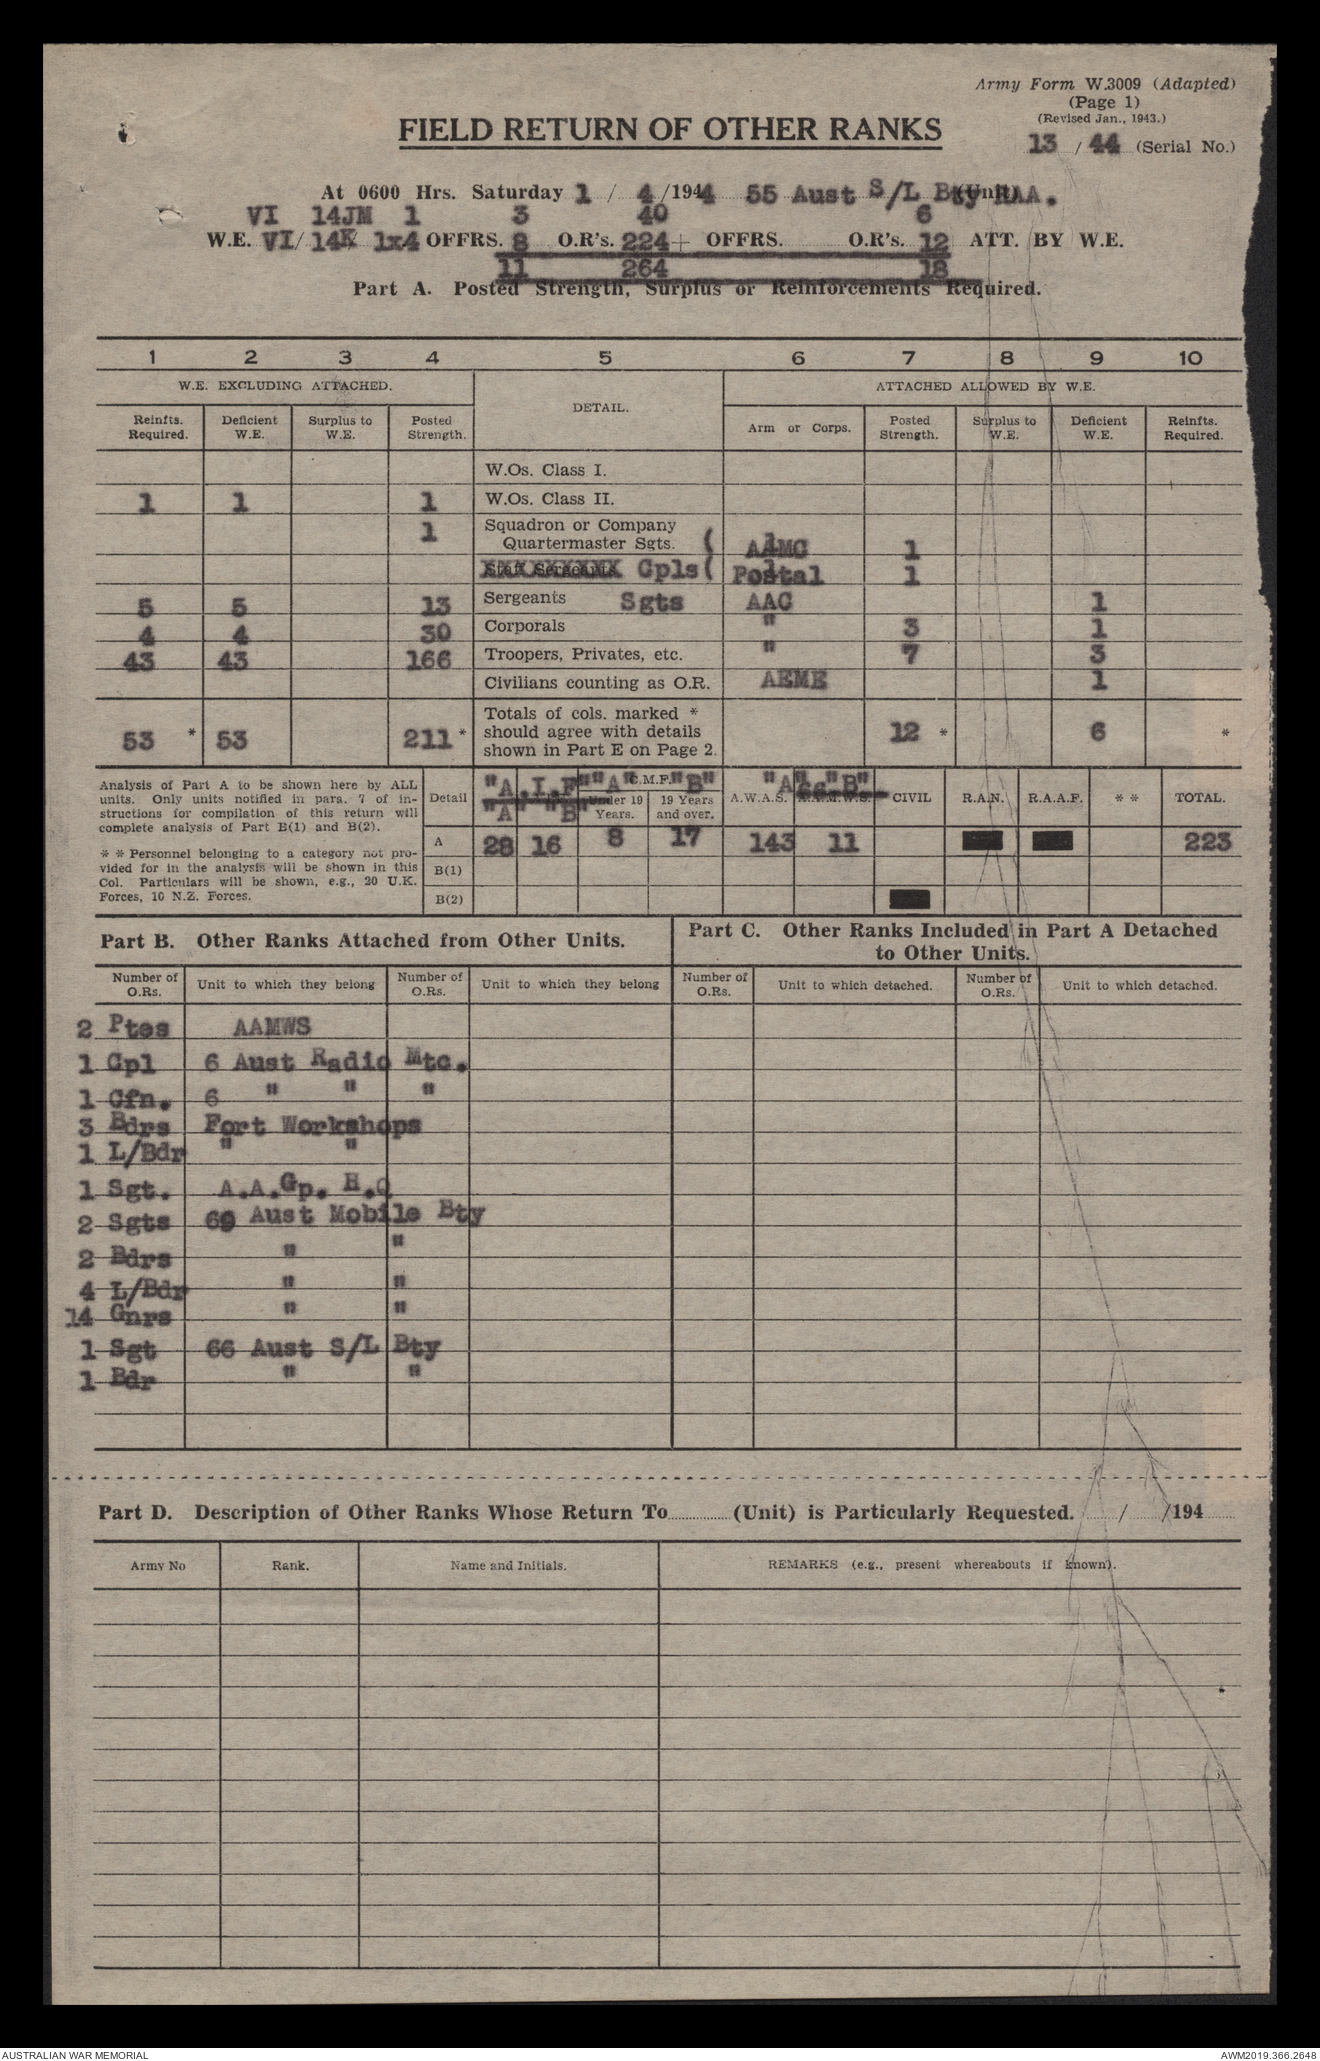 Army Form W.3009 (Adapted)
(Page 1)
(Revised Jan., 1943.)
FIELD RETURN OF OTHER RANKS
13 / 44 (Serial No.)
At 0600 Hrs. Saturday 1 / 4 /1944 55 Aust S/L Bty RAA. (Unit)
VI 14JM 1 3 40 6
W.E. VI/ 14K 1x4 OFFRS. 8 O.R's. 224 + OFFRS. O.R's. 12 ATT. BY W.E.
11 264 18
Part A. Posted Strength, Surplus or Reinforcements Required.
1 2 3 4 5 6 7 8 9 10
W.E. EXCLUDING ATTACHED. DETAIL. ATTACHED ALLOWED BY W.E.
Reinfts. Required. Deficient W.E. Surplus to W.E. Posted Strength. Arm or Corps. Posted Strength. Surplus to W.E. Deficient W.E. Reinfts. Required.
W.Os. Class I.
1 1 1 W.Os. Class II.
1 Squadron or Company
Quartermaster Sgts. ( AAMC 1
Staff Sergeants Cpls ( Postal 1
5 5 13 Sergeants Sgts AAC 1
4 4 30 Corporals " 3 1
43 43 166 Troopers, Privates, etc. " 7 3
Civilians counting as O.R. AEME 1
53 * 53 211 * Totals of cols. marked * should agree with details shown in Part E on Page 2. 12 * 6 *
Analysis of Part A to be shown here by ALL
units. Only units notified in para. 7 of in-
structions for compilation of this return will
complete analysis of Part E(1) and B(2).
* * Personnel belonging to a category not pro-
vided for in the analysis will be shown in this
Col. Particulars will be shown, e.g., 20 U.K.
Forces, 10 N.Z. Forces.
"A.I.F" "A" C.M.F. "B" "A" "B"
Detail "A" "B" Under 19 Years. 19 Years and over. A.W.A.S. A.A.M.W.S. CIVIL R.A.N. R.A.A.F. * * TOTAL.
A 28 16 8 17 143 11 223
B(1)
B(2)
Part B. Other Ranks Attached from Other Units.
Part C. Other Ranks Included in Part A Detached
to Other Units.
Number of O.Rs. Unit to which they belong Number of O.Rs. Unit to which they belong Number of O.Rs. Unit to which detached. Number of O.Rs. Unit to which detached.
2 Ptes AAMWS
1 Cpl 6 Aust Radio Mtc.
1 Cfn. 6 " " "
3 Bdrs Fort Workshops
1 L/Bdr " "
1 Sgt. A.A.Gp. H.Q
2 Sgts 69 Aust Mobile Bty
2 Bdrs " "
4 L/Bdr " "
14 Gnrs " "
1 Sgt 66 Aust S/L Bty
1 Bdr " "
Part D. Description of Other Ranks Whose Return To............(Unit) is Particularly Requested. / /194
Army No Rank. Name and Initials. REMARKS (e.g., present whereabouts if known).
AUSTRALIAN WAR MEMORIAL
AWM2019.366.2648